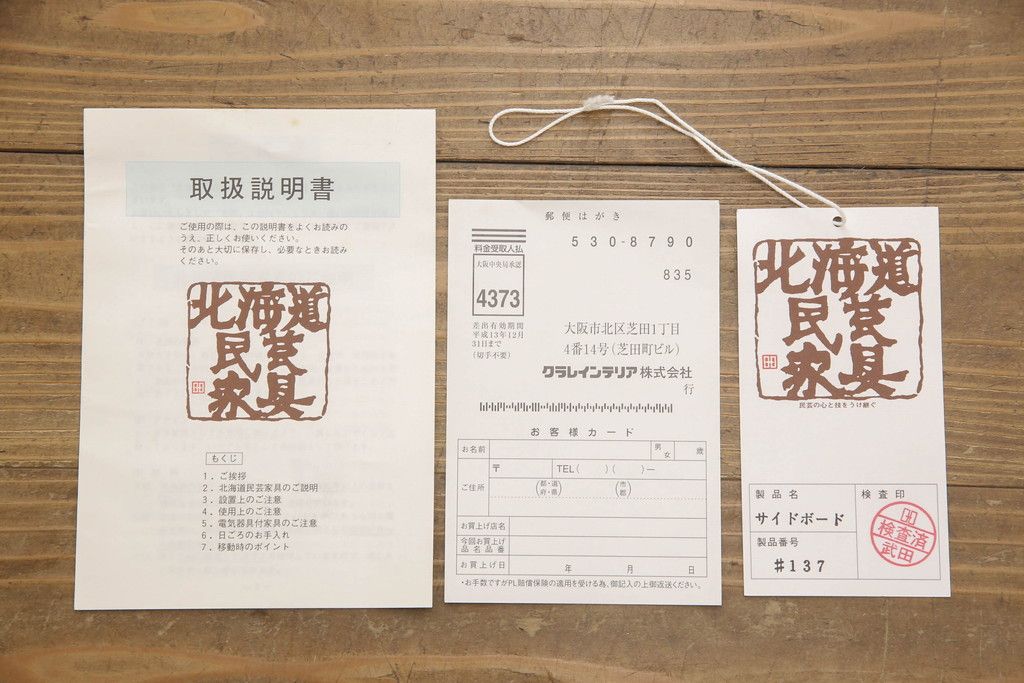 取扱説明書
ご使用の際は、この説明書をよくお読みの
うえ、正しくお使いください。
そのあと大切に保存し、必要なときお読み
ください。
北海道
民芸
家具
もくじ
1. ご挨拶
2. 北海道民芸家具のご説明
3. 設置上のご注意
4. 使用上のご注意
5. 電気器具付家具のご注意
6. 日ごろのお手入れ
7. 移動時のポイント
郵便はがき
料金受取人払
大阪中央局承認
4373
差出有効期間
平成13年12月
31日まで
(切手不要)
530-8790
835
大阪市北区芝田1丁目
4番14号(芝田町ビル)
クラレインテリア株式会社
行
お客様カード
お名前
男
女
歳
ご住所
〒
TEL( )( )―
都・道
府・県
市
郡
お買上げ店名
今回お買上げ
品名品番
お買上げ日
年 月 日
・お手数ですがPL賠償保険の適用を受ける為、御記入の上御返送ください。
北海道
民芸
家具
民芸の心と技をうけ継ぐ
製品名
サイドボード
製品番号
#137
検査印
検査済
武田